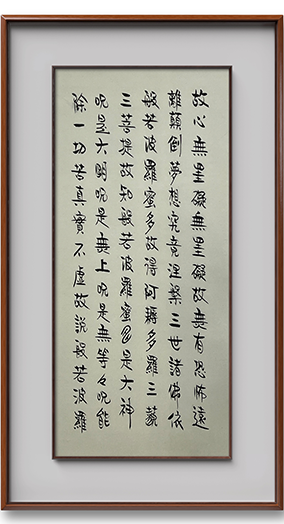 故心無罣礙無罣礙故無有恐怖遠
離顛倒夢想究竟涅槃三世諸佛依
般若波羅蜜多故得阿耨多羅三藐
三菩提故知般若波羅蜜多是大神
呪是大明呪是無上呪是無等々呪能
除一切苦真實不虛故說般若波羅